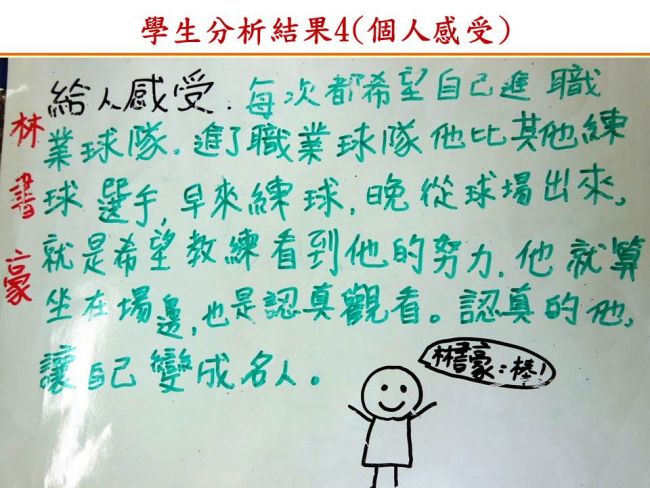 學生分析結果4(個人感受)
林書豪
給人感受.每次都希望自己進職
業球隊.進了職業球隊他比其他練
球選手,早來練球,晚從球場出來,
就是希望教練看到他的努力.他就算
坐在場邊,也是認真觀看。認真的他,
讓自己變成名人。
林書豪:棒!